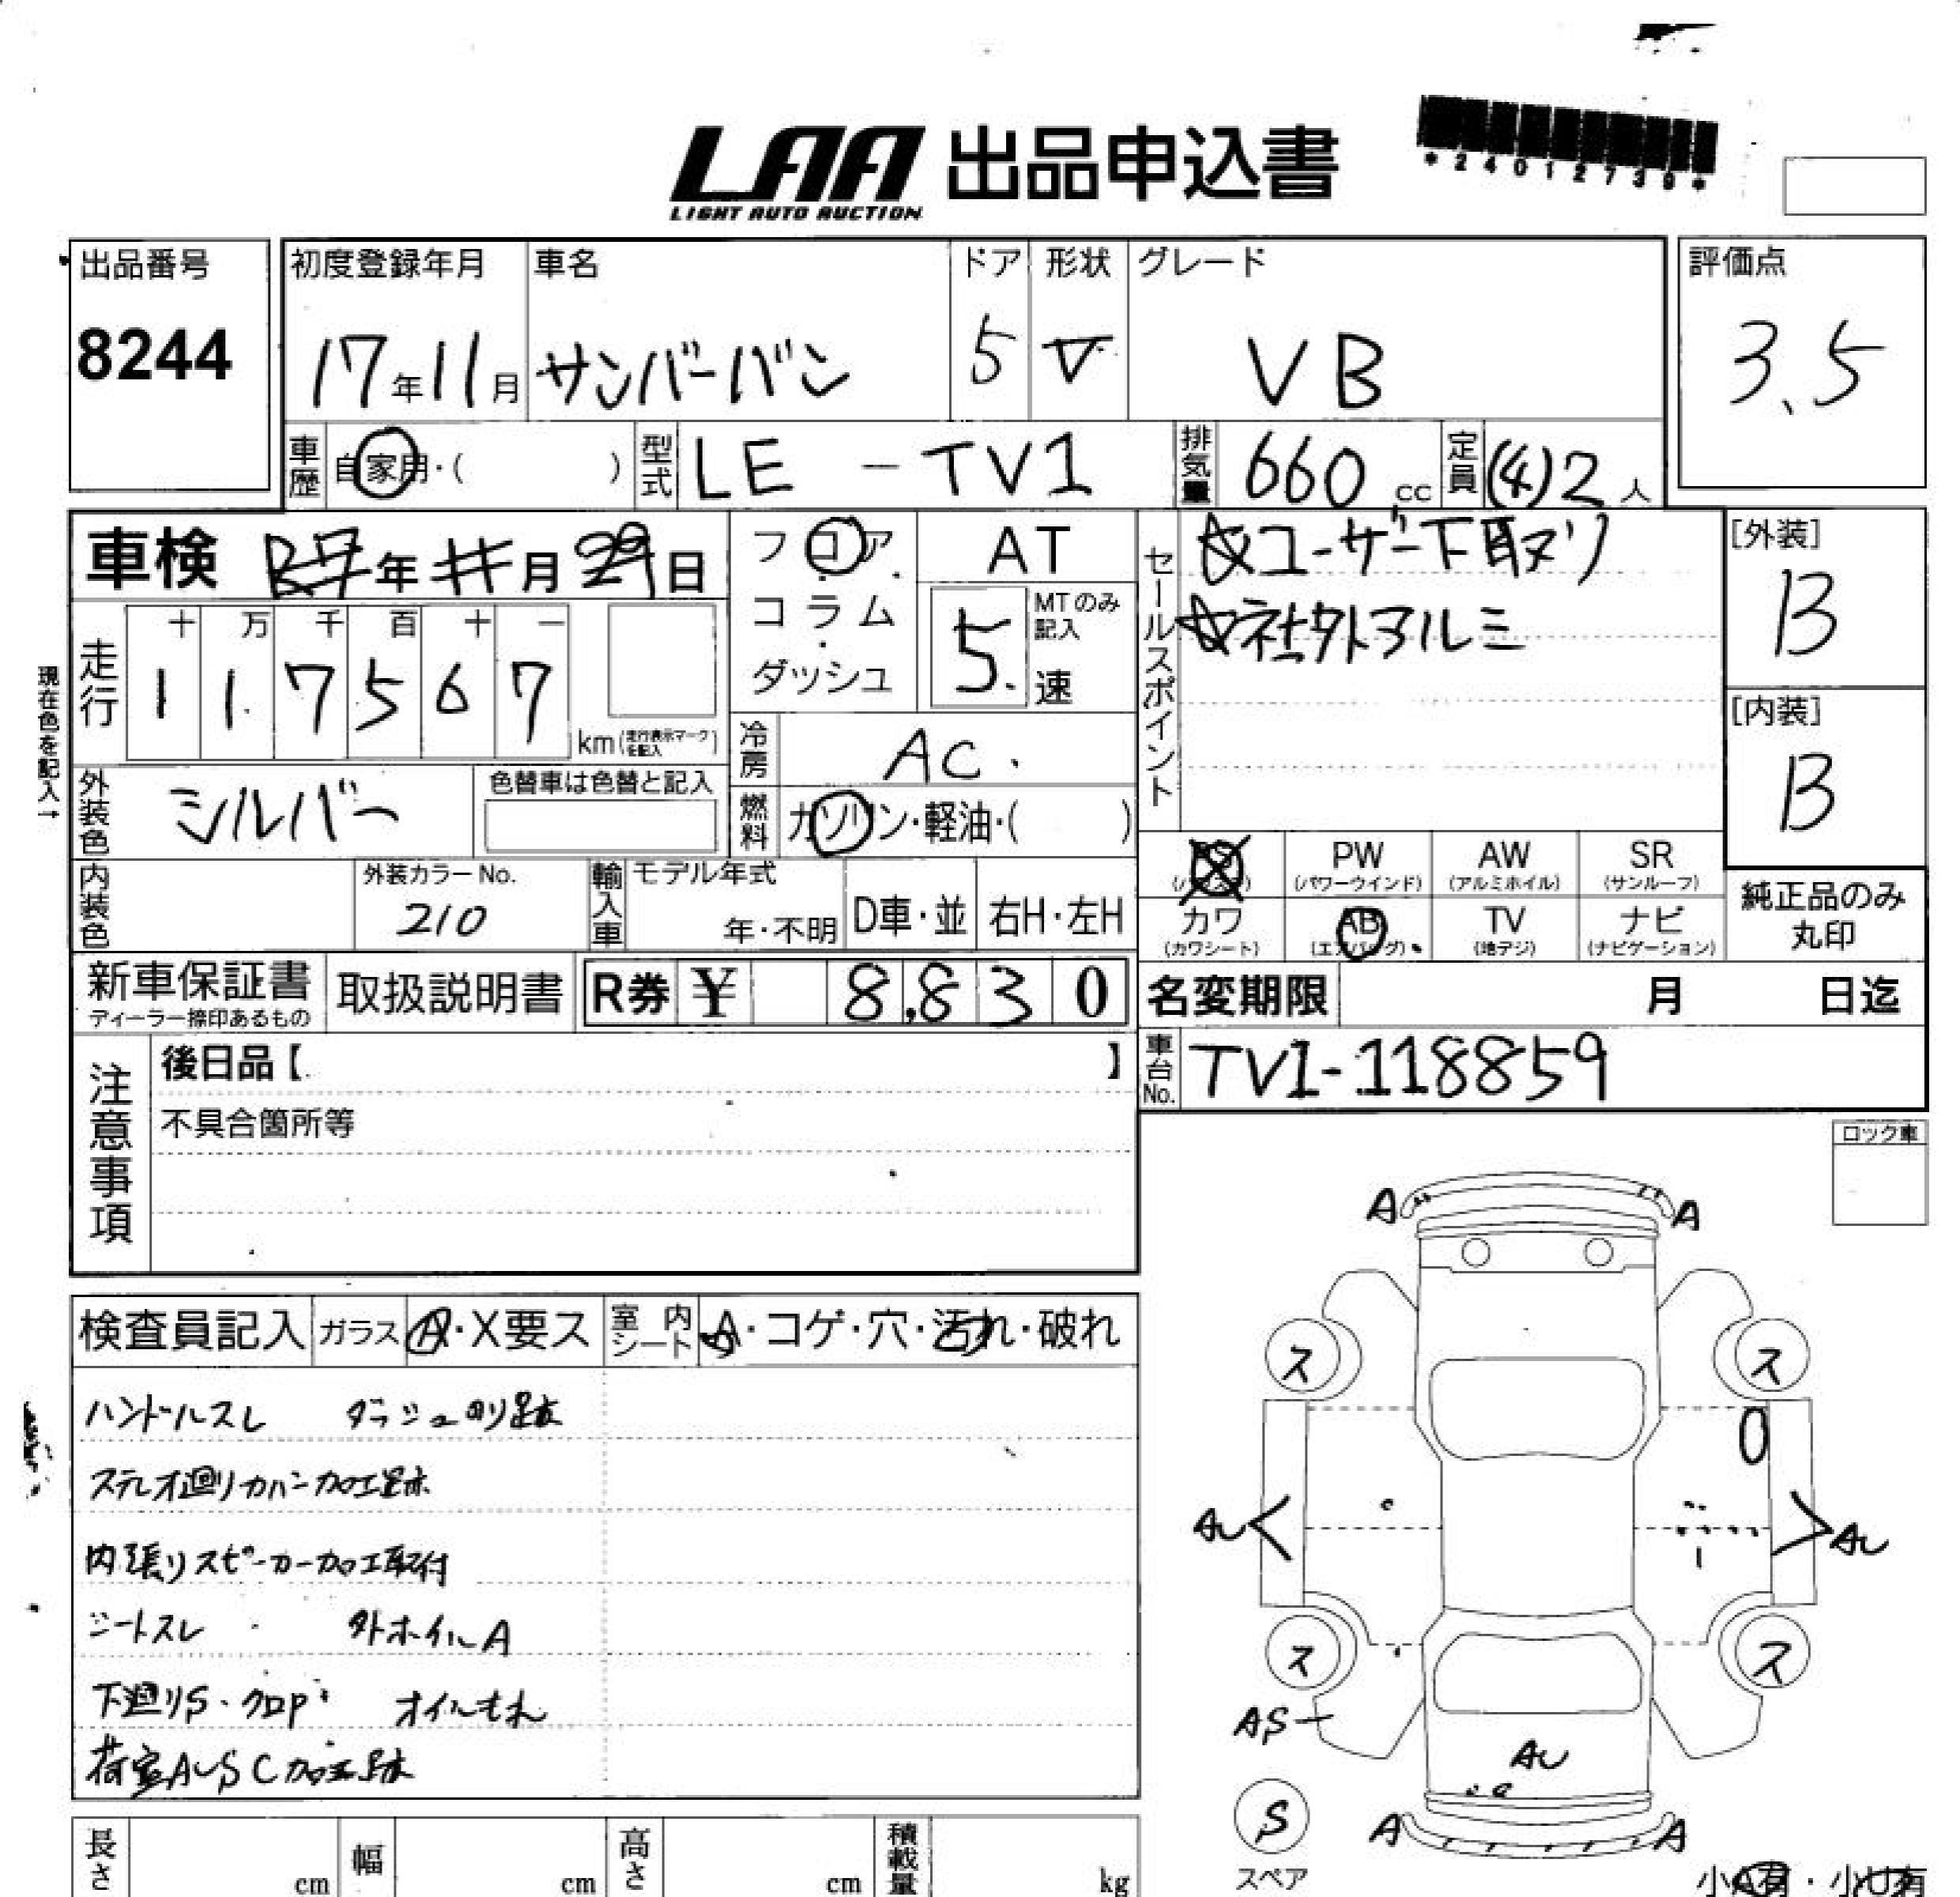 LAA 出品申込書
LIGHT AUTO AUCTION
*24012739*
出品番号
8244
初度登録年月
17年11月
車名
サンバーバン
ドア
5
形状
V
グレード
VB
評価点
3.5
車歴 自家用・( )
型式 LE-TV1
排気量 660 cc
定員 (4)2人
車検 年 月 29日
フロア
コラム
ダッシュ
AT
MTのみ記入
5.速
セールスポイント
☆ユーザー下取り
☆社外アルミ
[外装]
B
[内装]
B
現在色を記入→
走行
十 万 千 百 十 一
1 1 7 5 6 7
km(走行表示マークを記入)
冷房 AC.
燃料 ガソリン・軽油・( )
外装色 シルバー
色替車は色替と記入
内装色
外装カラーNo.
210
輸入車
モデル年式
年・不明
D車・並
右H・左H
PS
(パワステ)
PW
(パワーウインド)
AW
(アルミホイル)
SR
(サンルーフ)
カワ
(カワシート)
AB
(エアバッグ)
TV
(地デジ)
ナビ
(ナビゲーション)
純正品のみ
丸印
新車保証書
ディーラー捺印あるもの
取扱説明書
R券 ¥ 8,830
名変期限 月 日迄
車台No. TV1-118859
注意事項
後日品【 】
不具合箇所等
ロック車
検査員記入
ガラス A・X要ス
室内シート A・コゲ・穴・汚れ・破れ
ハンドルスレ ダッシュのり跡
ステレオ廻りカバー加工跡
内張りスピーカー加工取付
シートスレ 外ホイルA
下廻りS・クロP オイルもれ
荷室AUSC加工跡
A A
ス ス
AU AU
ス ス
AS
AU
S
スペア
A A
小A有・小U有
長さ cm
幅 cm
高さ cm
積載量 kg